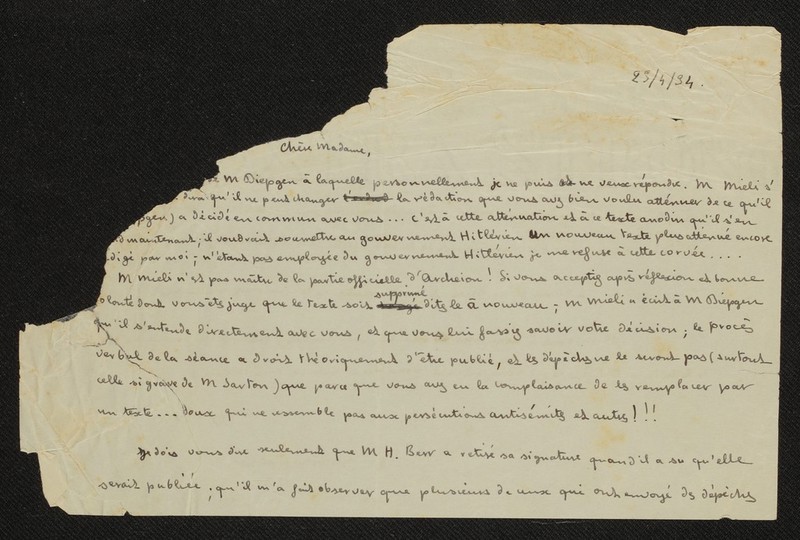 23/4/34.
Chère Madame,
de M Diepgen à laquelle personnellement je ne puis et ne veux répondre. M Mieli s'
dira qu'il ne peut changer la rédaction que vous avez bien voulu atténuer de ce qu'il
pgen) a décidé en commun avec vous... c'est à cette atténuation et à ce texte anodin qu'il s'en
maintenant; il voudrait soumettre au gouvernement Hitlérien un nouveau texte plus atténué encore
digé par moi; n'étant pas employée du gouvernement Hitlérien je me refuse à cette corvée....
M Mieli n'est pas maître de la partie officielle d'Archeion! Si vous acceptez après réflexion et bonne
olonté dont vous êts juge que le texte soit supprimé dites le à nouveau; M Mieli a écrit à M Diepgen
qu'il s'entende directement avec vous, et que vous lui fassiez savoir votre décision; le procès
verbal de la séance a droit théoriquement d'être publié, et les dépêches ne le seront pas (surtout
celle si grave de M Sarton) que parce que vous avez eu la complaisance de les remplacer par
un texte... doux qui ne ressemble pas aux persécutions antisémites et autres!!!
Je dois vous dire seulement que M H. Berr a retiré sa signature quand il a su qu'elle
serait publiée; qu'il m'a fait observer que plusieurs de ceux qui ont envoyé des dépêches